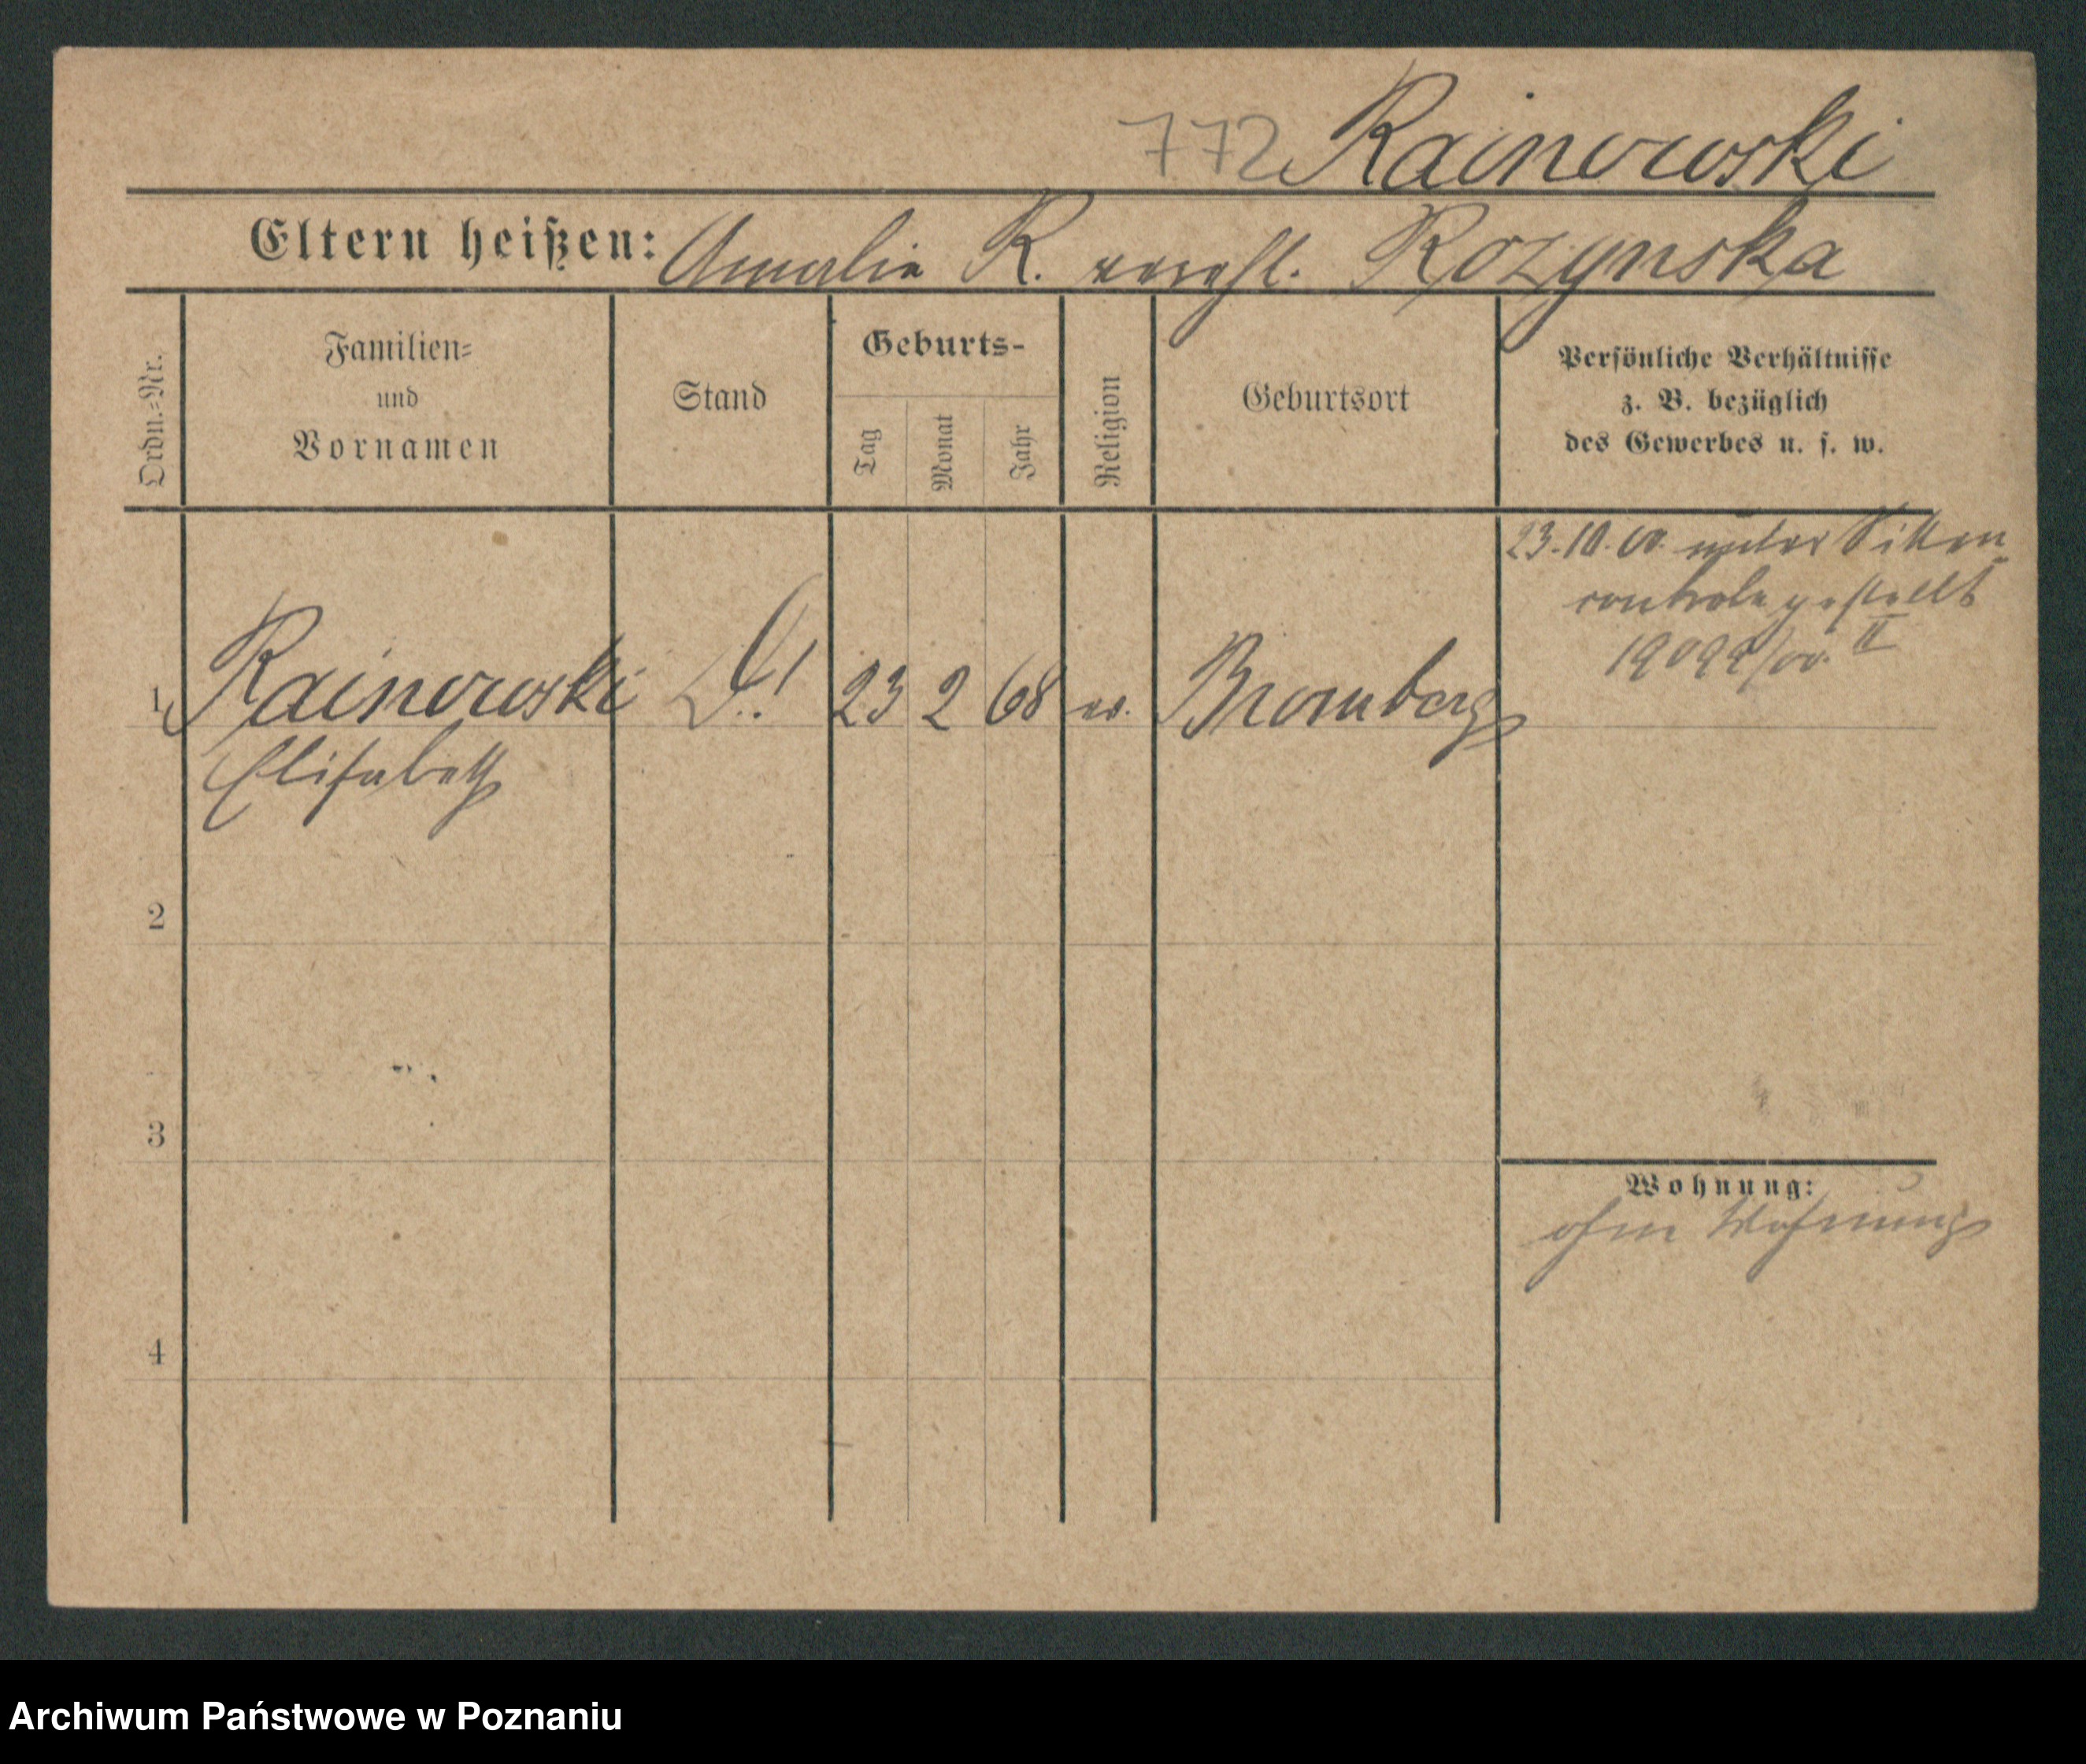 772 Rainowski
Eltern heißen: Amalie R. verehl. Rozynska
Ordn.=Nr.
Familien=
und
Vornamen
Stand
Geburts-
Tag
Monat
Jahr
Religion
Geburtsort
Persönliche Verhältnisse
z. B. bezüglich
des Gewerbes u. s. w.
23.10.00. unter Sitten
controle gestellt
19099/00. II
1 Rainowski 23 2 68 ev. Bromberg
Elisabeth
2
3
Wohnung:
ohne Wohnung
4
Archiwum Państwowe w Poznaniu